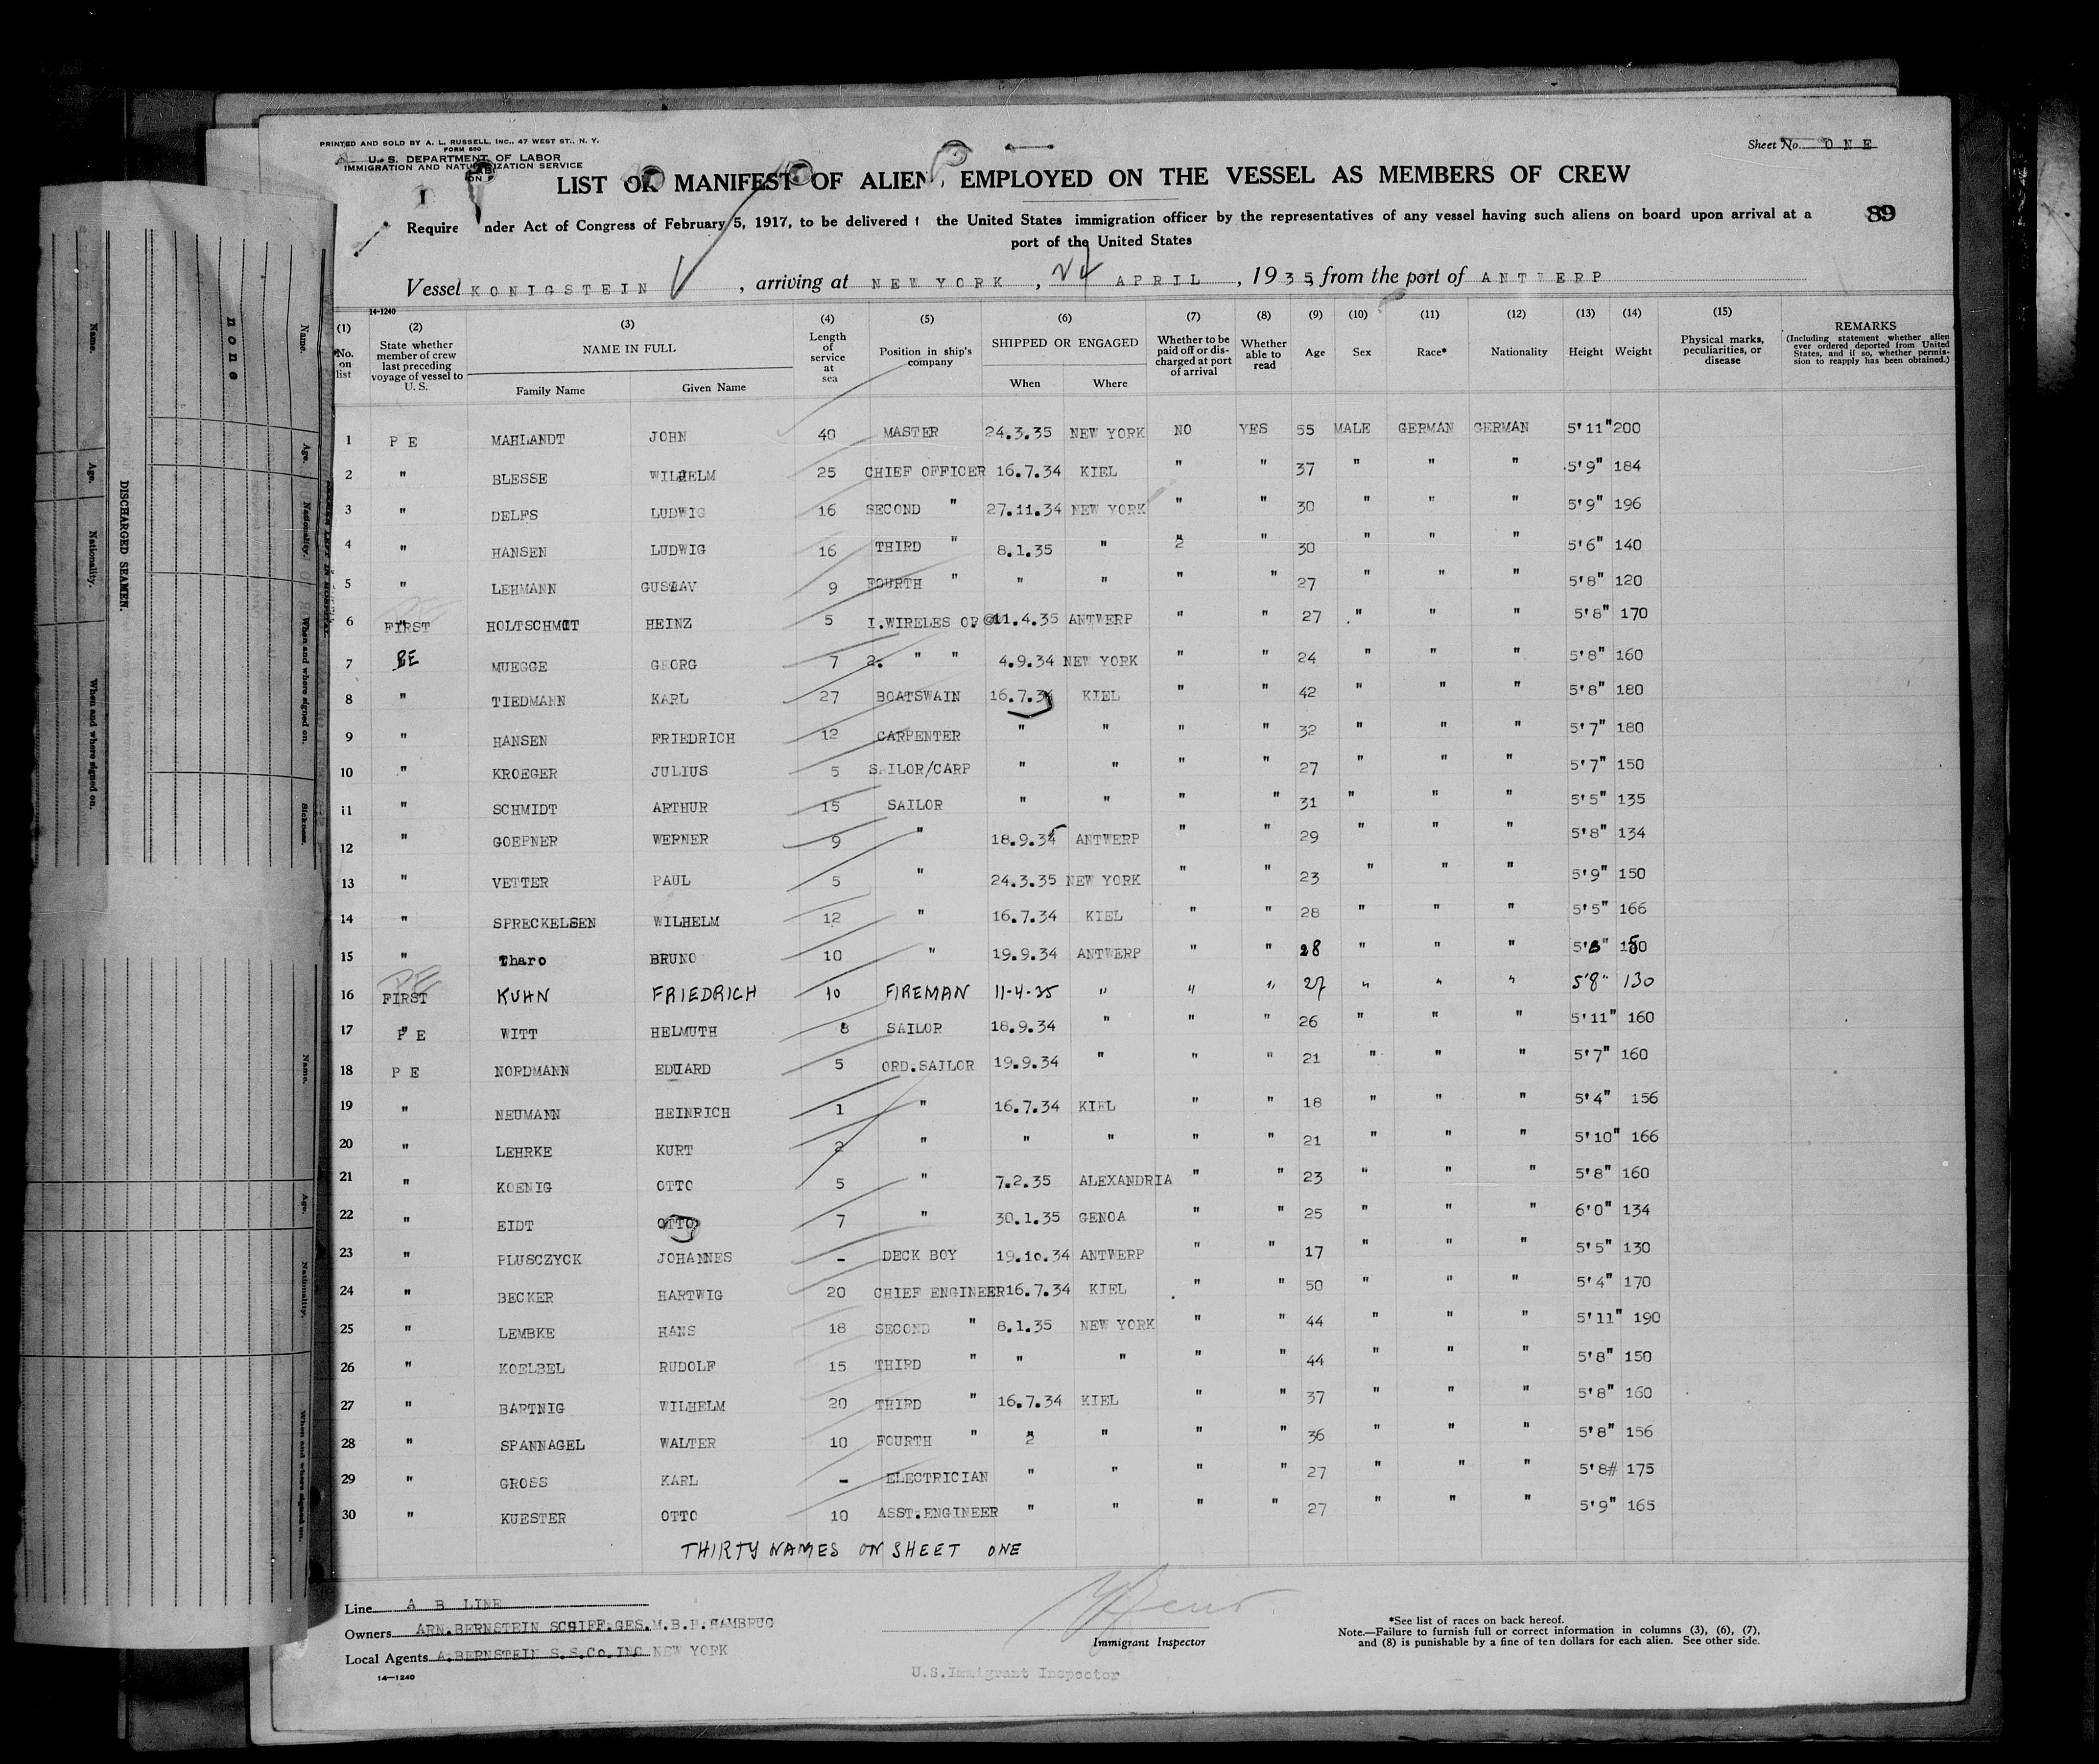 PRINTED AND SOLD BY A. L. RUSSELL, INC., 47 WEST ST., N. Y.
FORM 680
U. S. DEPARTMENT OF LABOR
IMMIGRATION AND NATURALIZATION SERVICE
Sheet No. ONE
LIST OR MANIFEST OF ALIEN, EMPLOYED ON THE VESSEL AS MEMBERS OF CREW
89
Require nder Act of Congress of February 5, 1917, to be delivered t the United States immigration officer by the representatives of any vessel having such aliens on board upon arrival at a
port of the United States
Vessel KONIGSTEIN, arriving at NEW YORK, 24 APRIL, 1935, from the port of ANTWERP
14-1240
(1) No. on list (2) State whether member of crew last preceding voyage of vessel to U. S. (3) NAME IN FULL Family Name Given Name (4) Length of service at sea (5) Position in ship's company (6) SHIPPED OR ENGAGED When Where (7) Whether to be paid off or discharged at port of arrival (8) Whether able to read (9) Age (10) Sex (11) Race* (12) Nationality (13) Height (14) Weight (15) Physical marks, peculiarities, or disease REMARKS (Including statement whether alien ever ordered deported from United States, and if so, whether permission to reapply has been obtained.)
1 P E MAHLANDT JOHN 40 MASTER 24.3.35 NEW YORK NO YES 55 MALE GERMAN GERMAN 5'11" 200
2 " BLESSE WILHELM 25 CHIEF OFFICER 16.7.34 KIEL " " 37 " " " 5'9" 184
3 " DELFS LUDWIG 16 SECOND " 27.11.34 NEW YORK " " 30 " " " 5'9" 196
4 " HANSEN LUDWIG 16 THIRD " 8.1.35 " " " 30 " " " 5'6" 140
5 " LEHMANN GUSTAV 9 FOURTH " " " " " 27 " " " 5'8" 120
6 FIRST HOLTSCHMIT HEINZ 5 I.WIRELES OP 11.4.35 ANTWERP " " 27 " " " 5'8" 170
7 PE MUEGGE GEORG 7 2. " " 4.9.34 NEW YORK " " 24 " " " 5'8" 160
8 " TIEDMANN KARL 27 BOATSWAIN 16.7.34 KIEL " " 42 " " " 5'8" 180
9 " HANSEN FRIEDRICH 12 CARPENTER " " " " 32 " " " 5'7" 180
10 " KROEGER JULIUS 5 SAILOR/CARP " " " " 27 " " " 5'7" 150
11 " SCHMIDT ARTHUR 15 SAILOR " " " " 31 " " " 5'5" 135
12 " GOEPNER WERNER 9 " 18.9.34 ANTWERP " " 29 " " " 5'8" 134
13 " VETTER PAUL 5 " 24.3.35 NEW YORK " " 23 " " " 5'9" 150
14 " SPRECKELSEN WILHELM 12 " 16.7.34 KIEL " " 28 " " " 5'5" 166
15 " Tharo BRUNO 10 " 19.9.34 ANTWERP " " 28 " " " 5'8" 150
16 PE FIRST KUHN FRIEDRICH 10 FIREMAN 11-4-35 " " " 27 " " " 5'8" 130
17 P E WITT HELMUTH 8 SAILOR 18.9.34 " " " 26 " " " 5'11" 160
18 P E NORDMANN EDUARD 5 ORD.SAILOR 19.9.34 " " " 21 " " " 5'7" 160
19 " NEUMANN HEINRICH 1 " 16.7.34 KIEL " " 18 " " " 5'4" 156
20 " LEHRKE KURT 2 " " " " " 21 " " " 5'10" 166
21 " KOENIG OTTO 5 " 7.2.35 ALEXANDRIA " " 23 " " " 5'8" 160
22 " EIDT OTTO 7 " 30.1.35 GENOA " " 25 " " " 6'0" 134
23 " PLUSCZYCK JOHANNES - DECK BOY 19.10.34 ANTWERP " " 17 " " " 5'5" 130
24 " BECKER HARTWIG 20 CHIEF ENGINEER 16.7.34 KIEL " " 50 " " " 5'4" 170
25 " LEMBKE HANS 18 SECOND " 8.1.35 NEW YORK " " 44 " " " 5'11" 190
26 " KOELBEL RUDOLF 15 THIRD " " " " " 44 " " " 5'8" 150
27 " BARTNIG WILHELM 20 THIRD " 16.7.34 KIEL " " 37 " " " 5'8" 160
28 " SPANNAGEL WALTER 10 FOURTH " " " " " 36 " " " 5'8" 156
29 " GROSS KARL - ELECTRICIAN " " " " 27 " " " 5'8# 175
30 " KUESTER OTTO 10 ASST.ENGINEER " " " " 27 " " " 5'9" 165
THIRTY NAMES ON SHEET ONE
Line A B LINE
Owners ARN.BERNSTEIN SCHIFF.GES.M.B.H.HAMBRUG
Local Agents A.BERNSTEIN S.S.Co.INC NEW YORK
14—1240
Immigrant Inspector
U.S.Immigrant Inspector
*See list of races on back hereof.
Note.—Failure to furnish full or correct information in columns (3), (6), (7),
and (8) is punishable by a fine of ten dollars for each alien. See other side.
none
Name. Age. Nationality. When and where signed on. Sickness.
DISCHARGED SEAMEN.
Name. Age. Nationality. When and where signed on.
Name. Age. Nationality. When and where signed on.